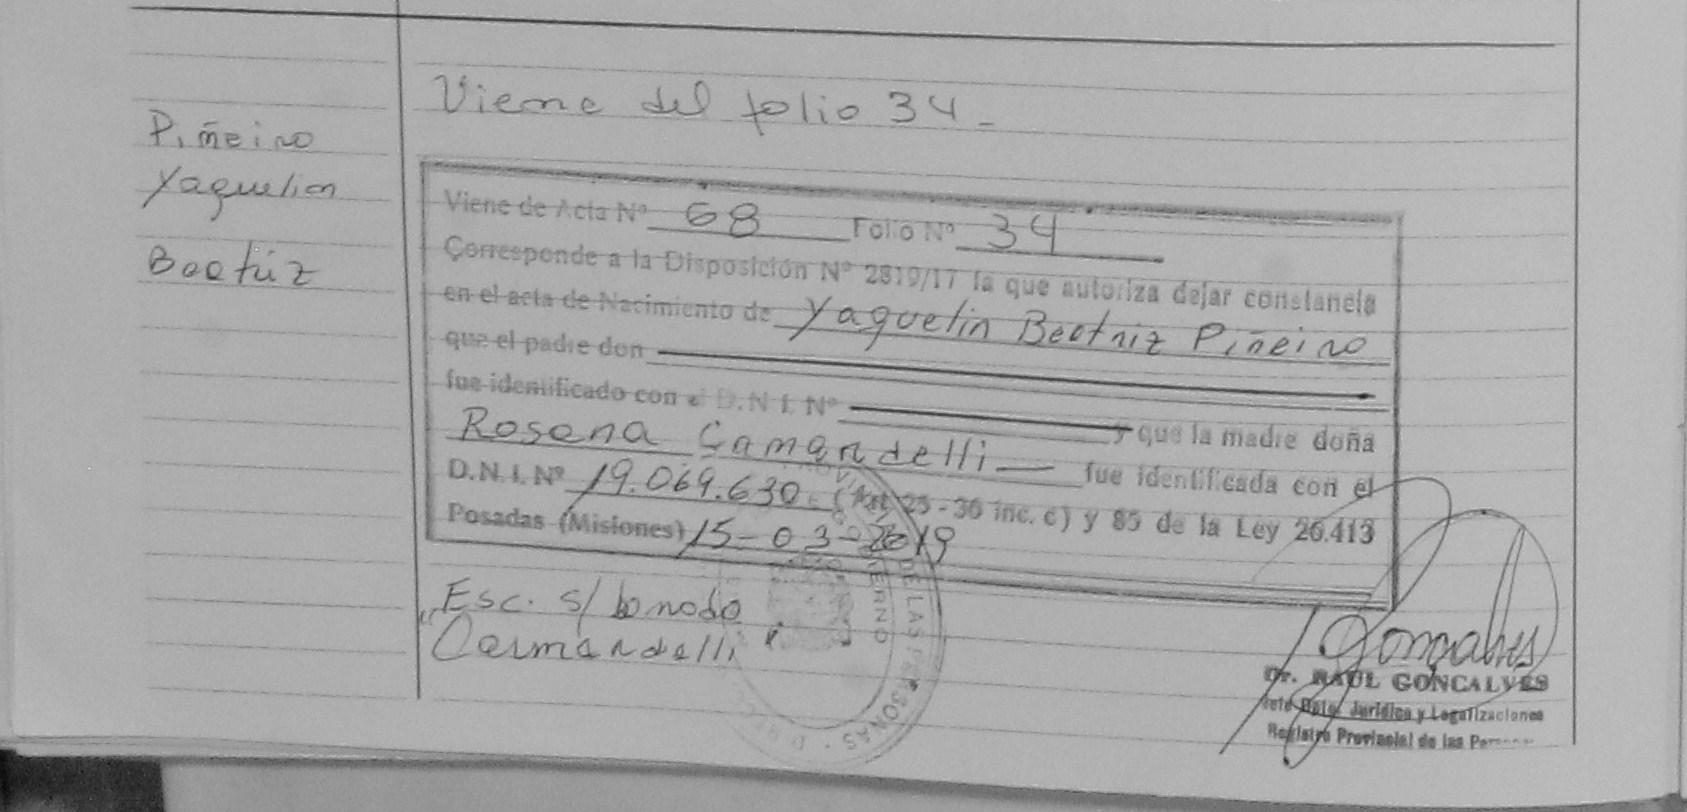 Viene del folio 34-
Piñeiro
Yaquelin
Beatriz
Viene de Acta Nº 68 Folio Nº 34
Corresponde a la Disposición Nº 2819/17 la que autoriza dejar constancia
en el acta de Nacimiento de Yaquelin Beatriz Piñeiro
que el padre don
fue identificado con el D.N.I. Nº
y que la madre doña
Rosena Camandelli fue identificada con el
D.N.I. Nº 19.069.630- (Art 25 - 36 inc. c) y 85 de la Ley 26.413
Posadas (Misiones) 15-03-2019
Esc. s/ bonado
"Camandelli"
DE LAS PERSONAS
Goncalves
Dr. RAUL GONCALVES
Jefe Dpto. Jurídico y Legalizaciones
Registro Provincial de las Personas